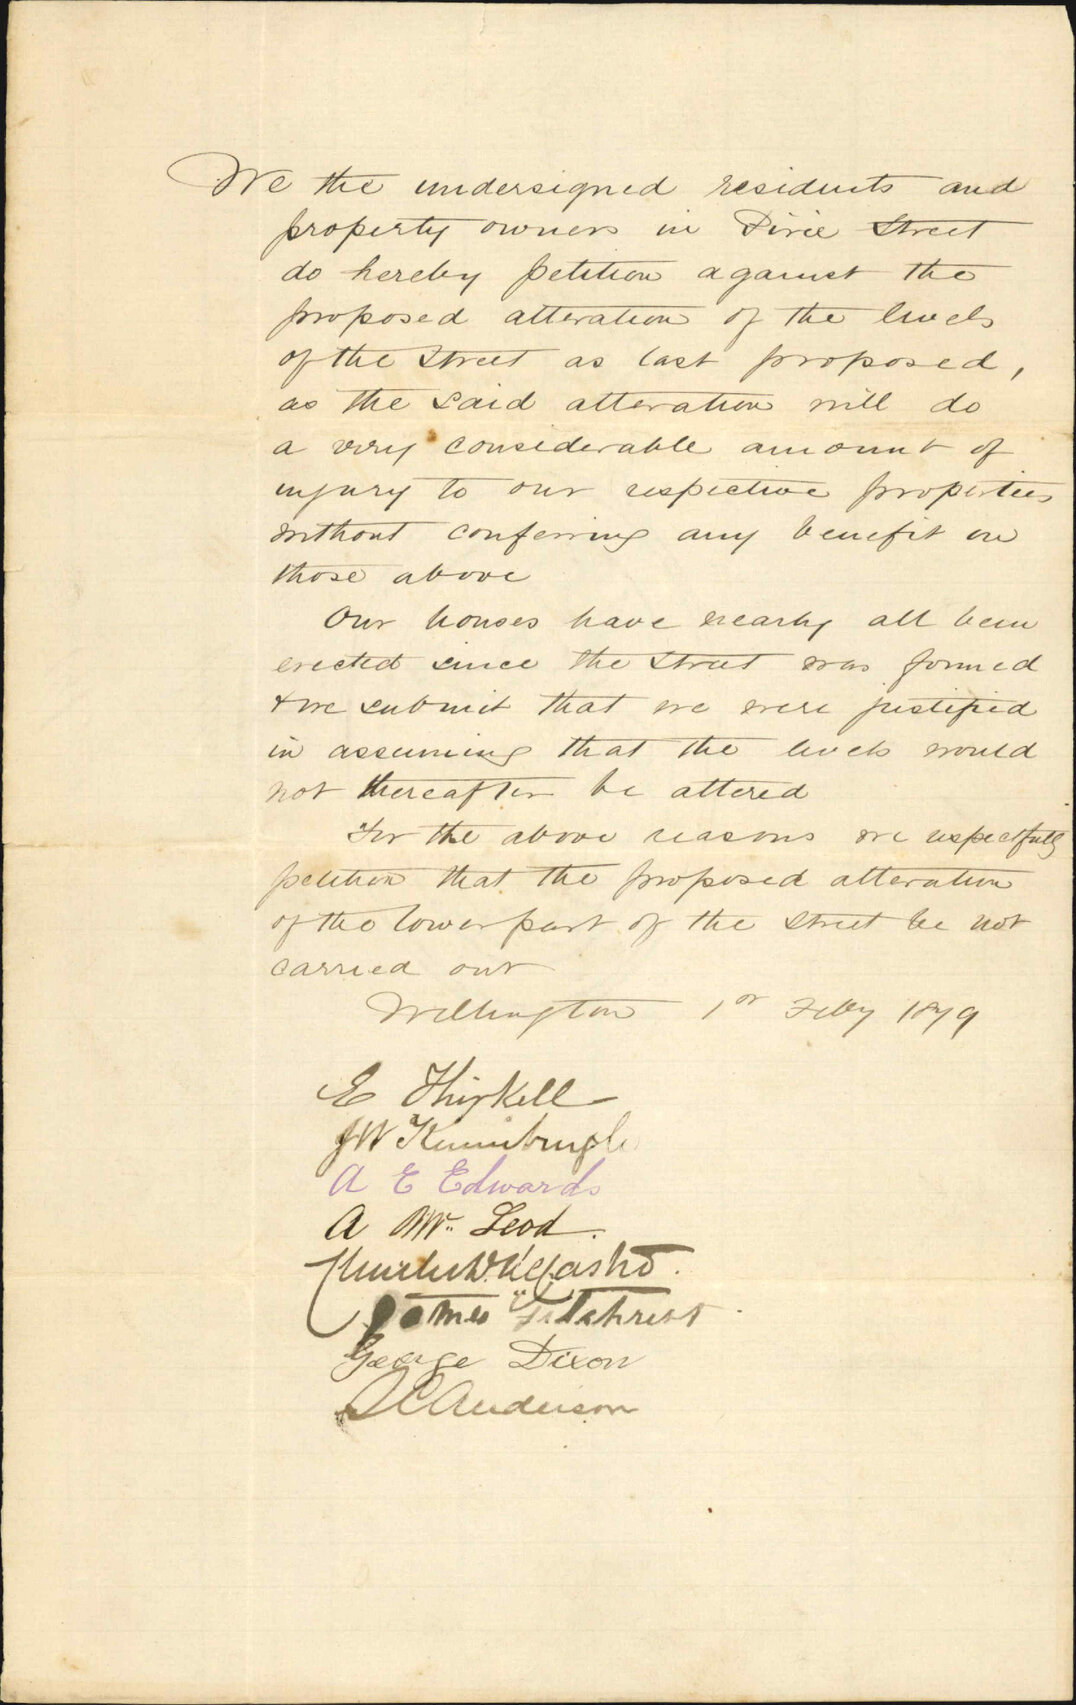 We the undersigned residents and
property owners in Pirie Street
do hereby petition against the
proposed alteration of the levels
of the Street as last proposed,
as the said alteration will do
a very considerable amount of
injury to our respective properties
without conferring any benefit on
those above
Our houses have nearly all been
erected since the Street was formed
& we submit that we were justified
in assuming that the levels would
not thereafter be altered
For the above reasons we respectfully
petition that the proposed alteration
of the lower part of the Street be not
carried out
Wellington 1st Feby 1879
E Thirkell
JW
A E Edwards
A Mc Leod.
James
George Dixon
Anderson